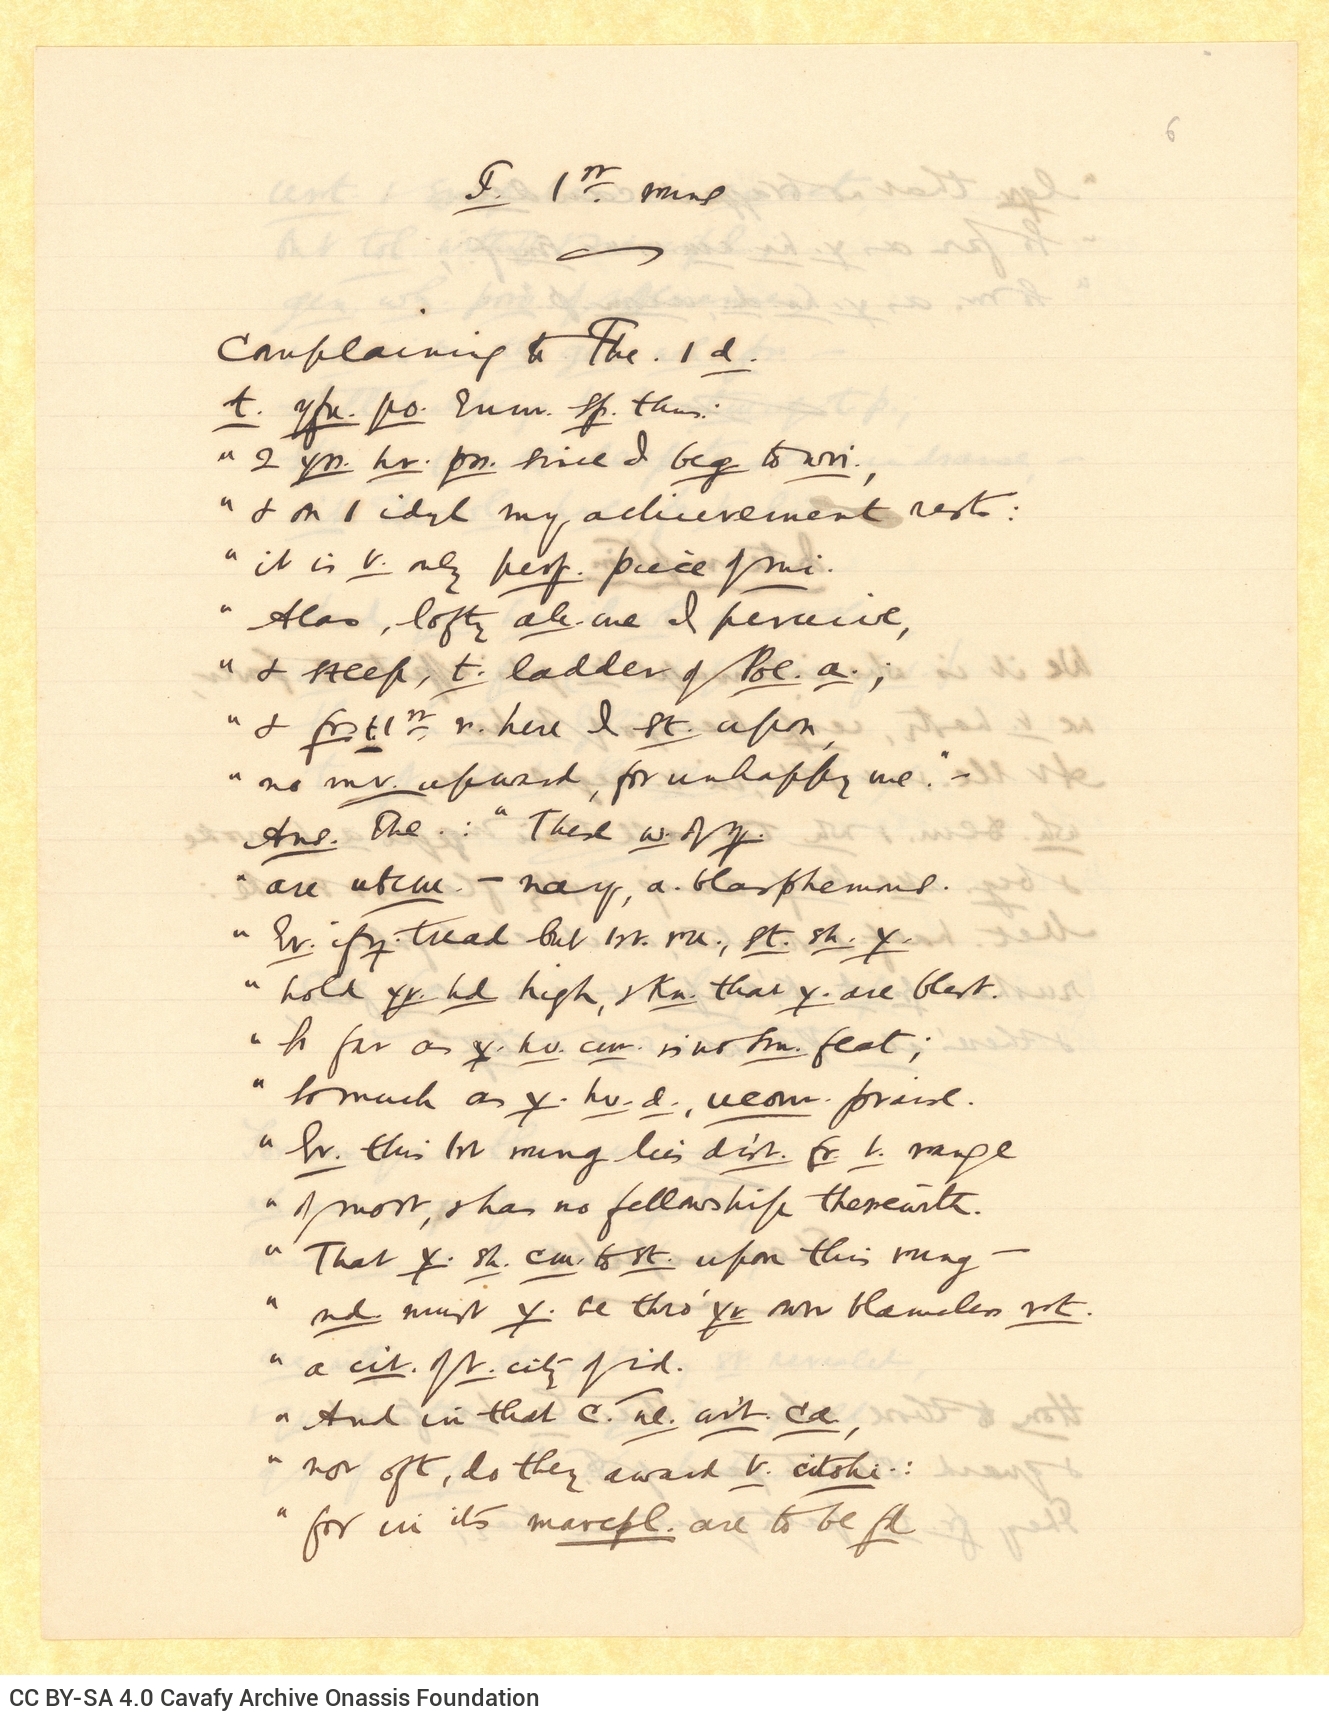 6
T. 1st. rung
Complaining to The. 1 d.
t. yfu. po. Eum. sp. thus:
" 2 yrs. hv. ps. since I beg to wri.,
" & on 1 idyl my achievement rests:
" it is t. only perf. piece of mi.
" Alas, lofty ab. me I perceive,
" & steep, t. ladder of Poe. a.;
" & fr. t. 1st r. here I st. upon,
" no mv. upward, for unhappy me." –
Ans. The. : " These w. of y.
" are unbecm. – nay, a. blasphemous.
" Ev. if y. tread but 1st. ru., st. sh. y.
" hold yr. hd high, & kn. that y. are blest.
" So far as y. hv. cm. is no sm. feat;
" so much as y. hv. d., glorious praise.
" Ev. this 1st rung lies dist. fr. t. range
" of most, & has no fellowship therewith.
" That y. sh. cm. to st. upon this rung –
" nd. must y. be thro' yr own blameless rt.
" a cit. of t. city of id.
" And in that c. ne. wit. ca.,
" nor oft, do they award t. citshi.:
" for in its marcpl. are to be fd
CC BY-SA 4.0 Cavafy Archive Onassis Foundation